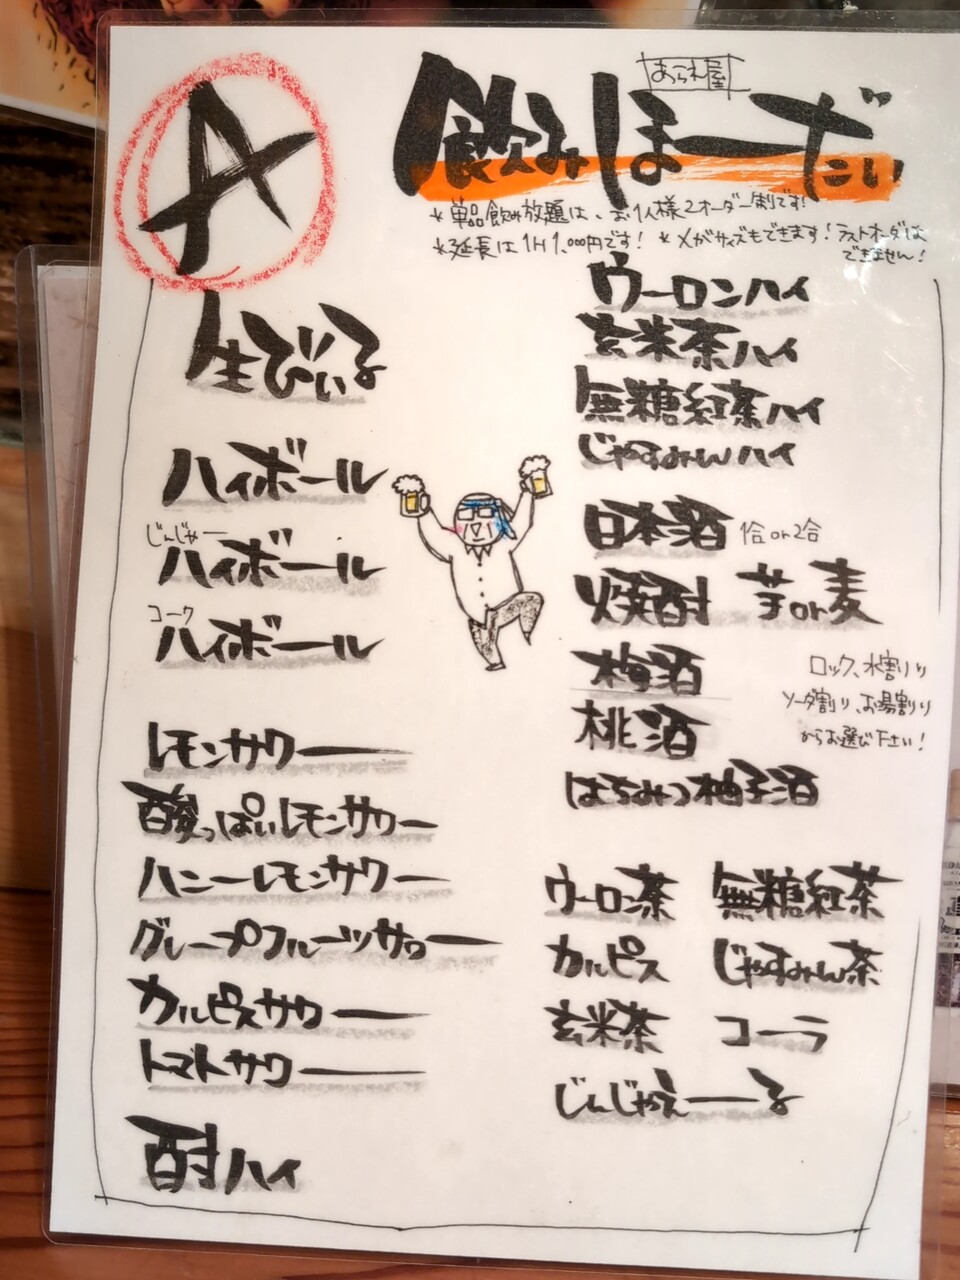 A
あられ屋
飲みほーだい
*単品飲み放題は、お1人様2オーダー制です!
*延長は1H1,000円です! *メガサイズもできます!ラストオーダーは
できません!
生びぃる
ハイボール
じんじゃー
ハイボール
コーク
ハイボール
レモンサワー
酸っぱいレモンサワー
ハニーレモンサワー
グレープフルーツサワー
カルピスサワー
トマトサワー
酎ハイ
ウーロンハイ
玄米茶ハイ
無糖紅茶ハイ
じゃすみんハイ
日本酒 1合or2合
焼酎 芋or麦
梅酒
桃酒
はちみつ柚子酒
ロック、水割り
ソーダ割り、お湯割り
からお選び下さい!
ウーロン茶 無糖紅茶
カルピス じゃすみん茶
玄米茶 コーラ
じんじゃえーる